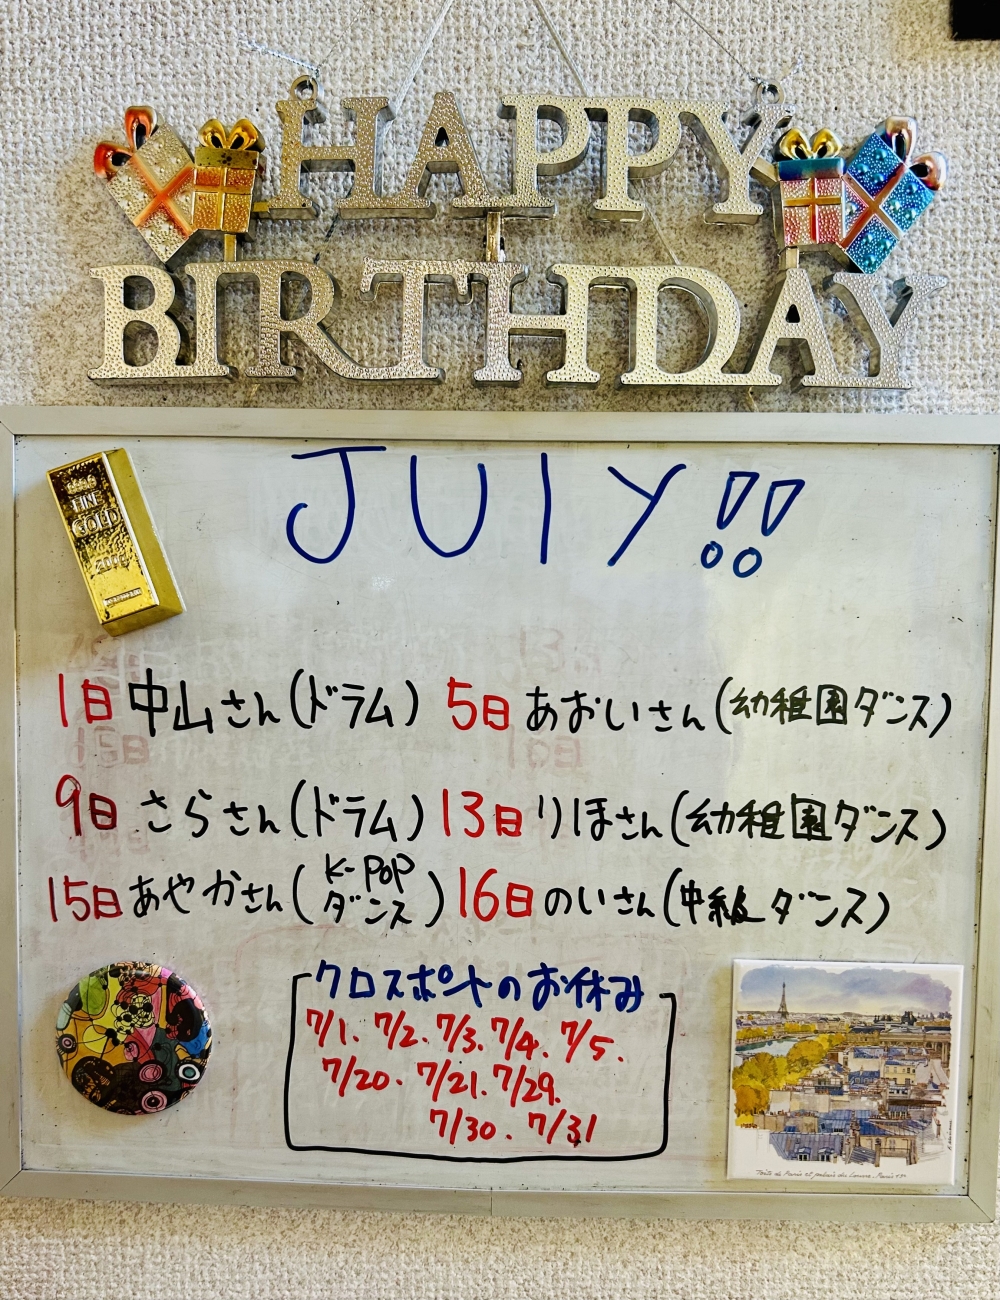 HAPPY
BIRTHDAY
FINE
GOLD
JULY!!
1日 中山さん(ドラム) 5日 あおいさん(幼稚園ダンス)
9日 さらさん(ドラム) 13日 りほさん(幼稚園ダンス)
15日 あやかさん(K-POPダンス) 16日 のいさん(中級ダンス)
クロスポイントのお休み
7/1. 7/2. 7/3. 7/4. 7/5.
7/20. 7/21. 7/29.
7/30. 7/31
Toits de Paris et palais du Louvre. Paris